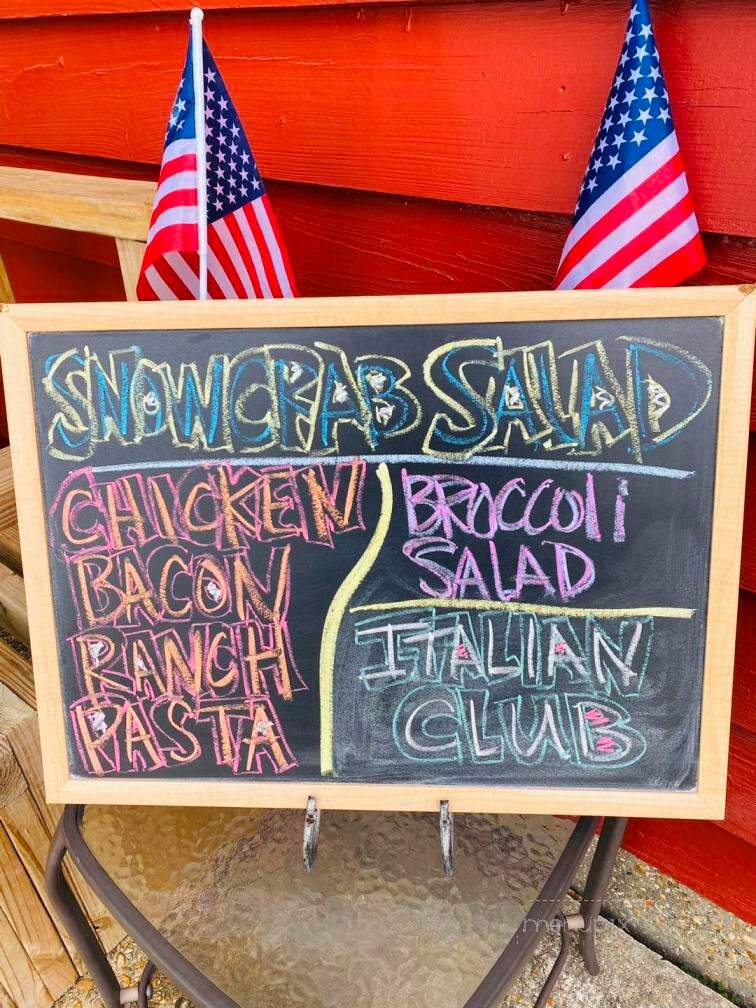 SNOWCRAB SALAD
CHICKEN
BACON
RANCH
PASTA
BROCCOLi
SALAD
ITALIAN
CLUB
menupix